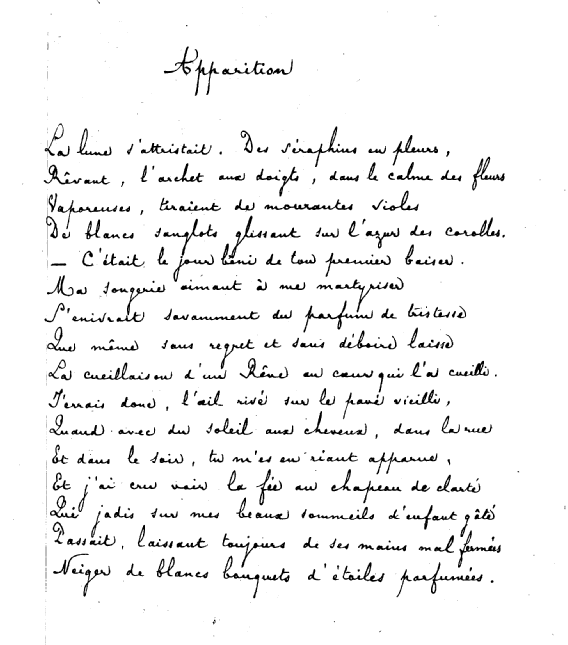 Apparition
La lune s'attristait. Des séraphins en pleurs,
Rêvant, l'archet aux doigts, dans le calme des fleurs
Vaporeuses, tiraient de mourantes violes
De blancs sanglots glissant sur l'azur des corolles.
— C'était le jour béni de ton premier baiser.
Ma songerie aimant à me martyriser
S'enivrait savamment du parfum de tristesse
Que même sans regret et sans déboire laisse
La cueillaison d'un Rêve au cœur qui l'a cueilli.
J'errais donc, l'œil rivé sur le pavé vieilli,
Quand avec du soleil aux cheveux, dans la rue
Et dans le soir, tu m'es en riant apparue,
Et j'ai cru voir la fée au chapeau de clarté
Qui jadis sur mes beaux sommeils d'enfant gâté
Passait, laissant toujours de ses mains mal fermées
Neiger de blancs bouquets d'étoiles parfumées.